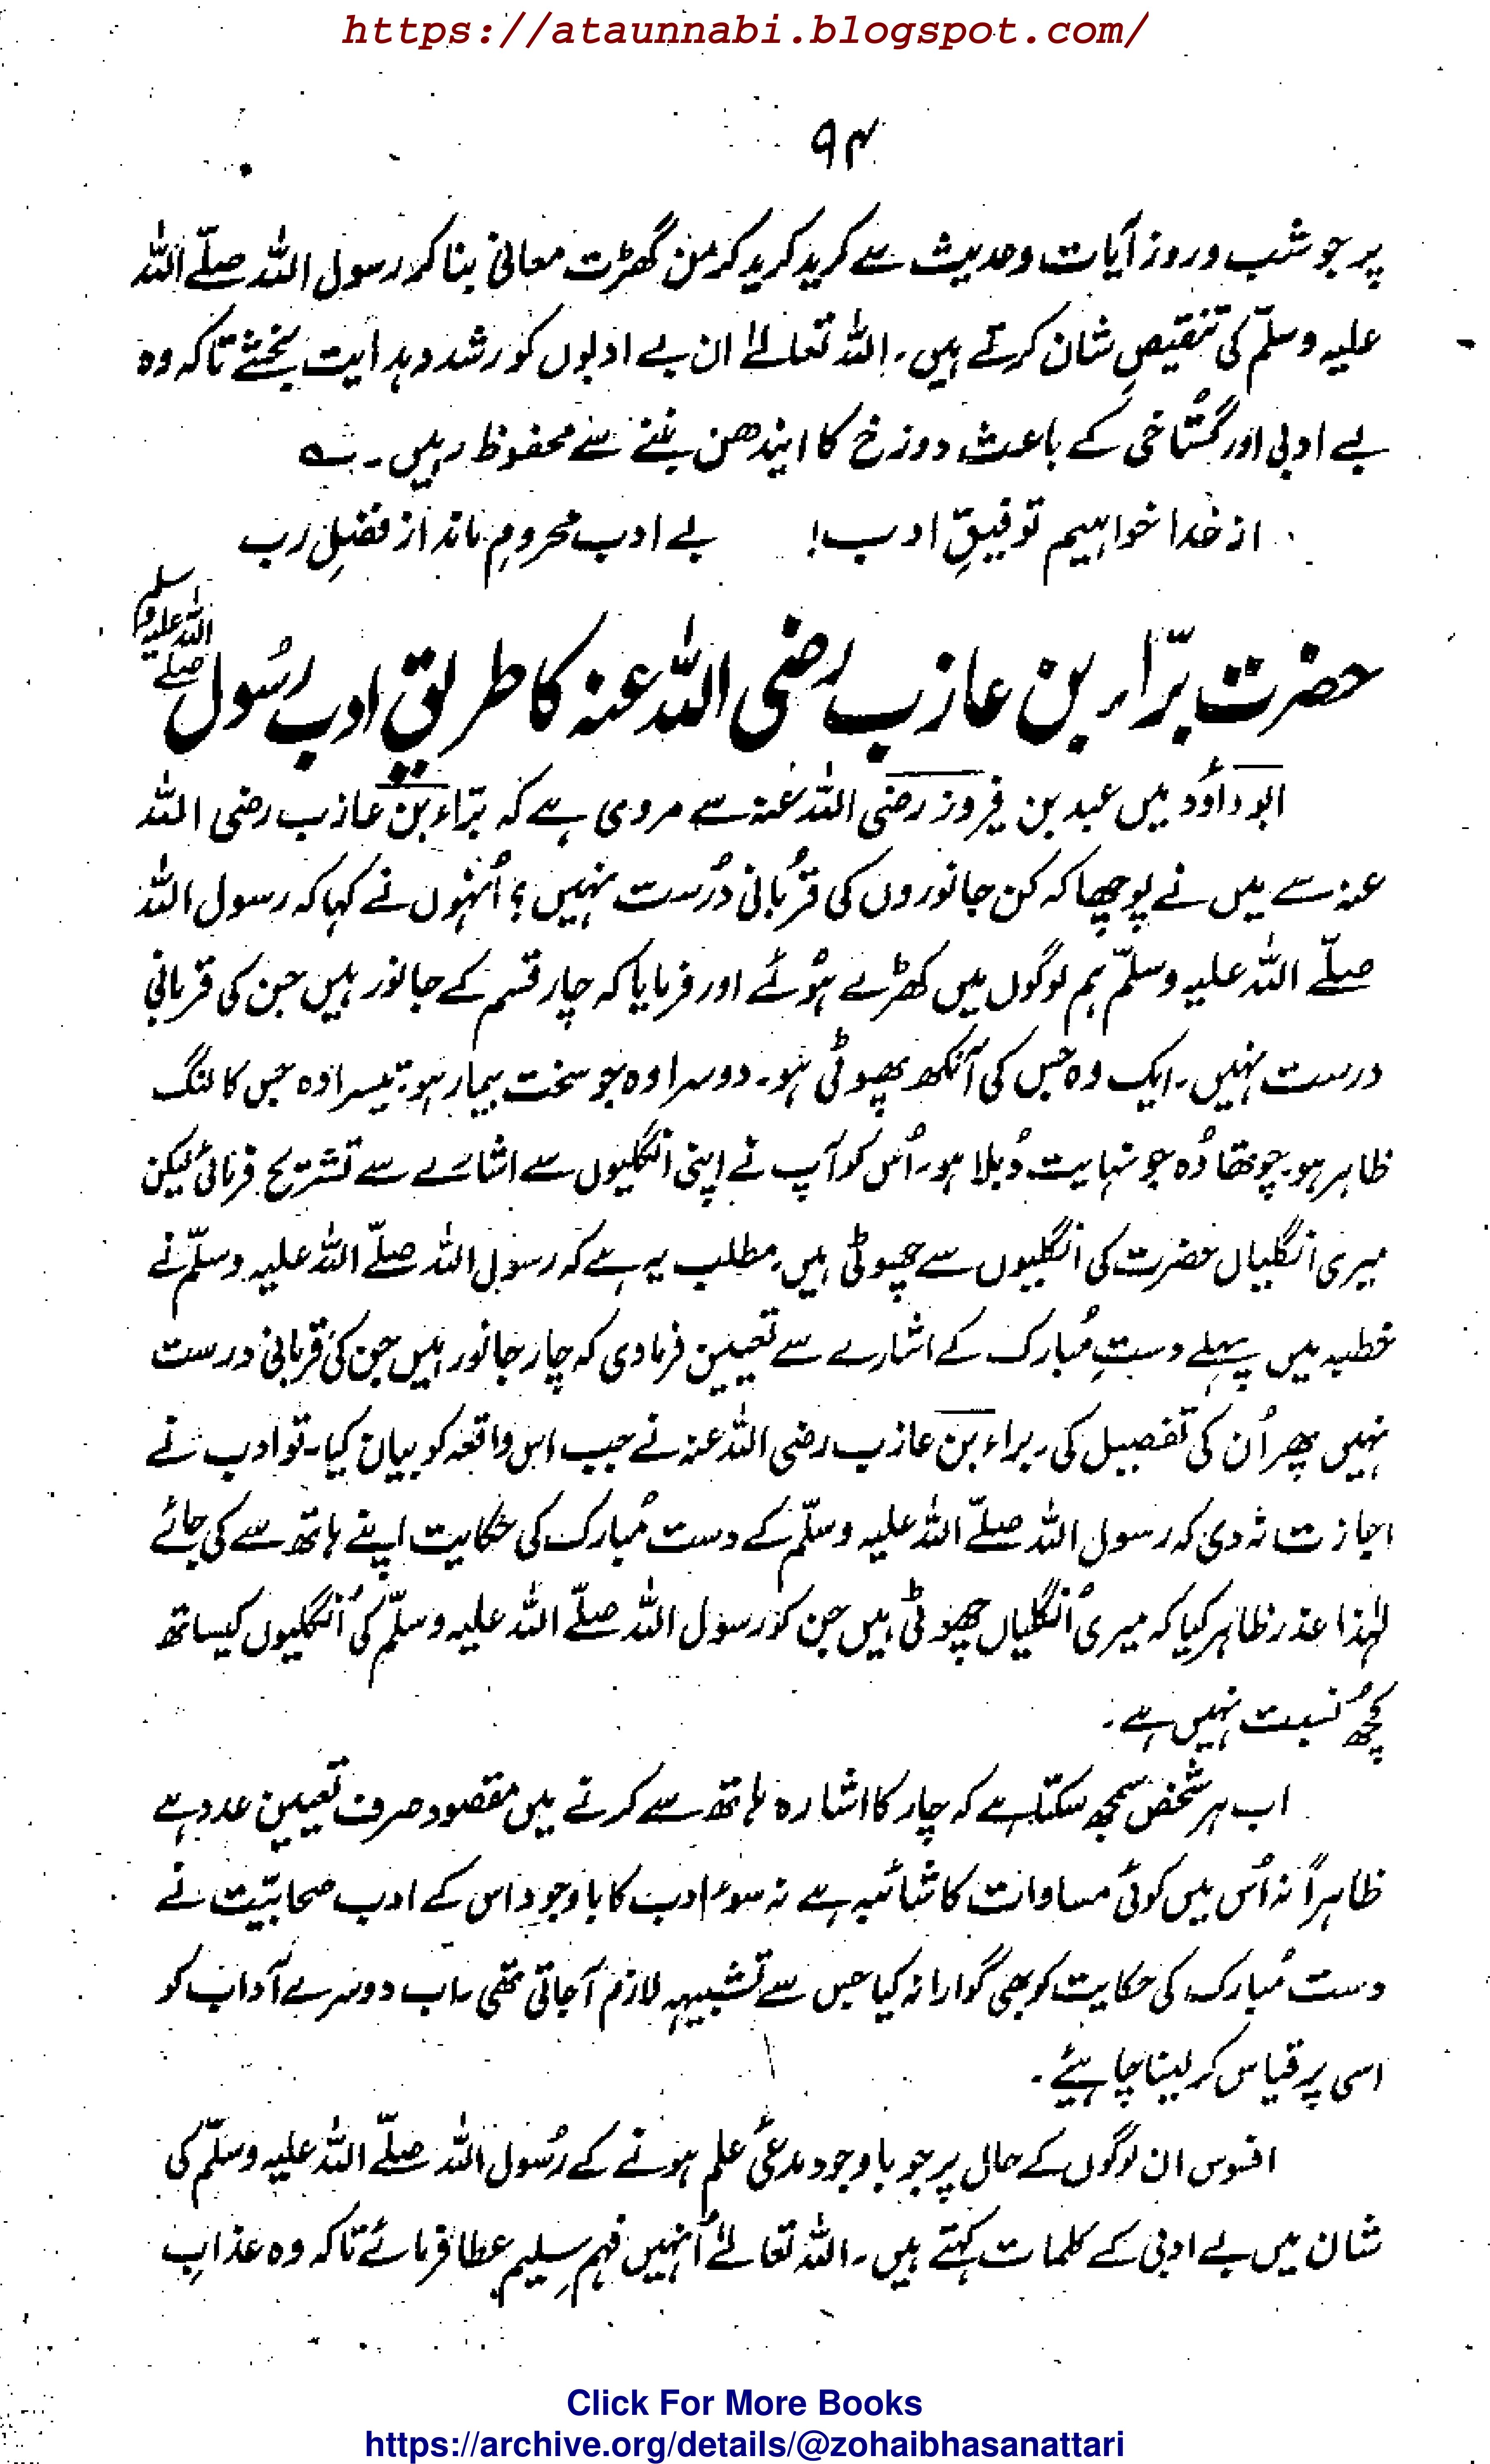 https://ataunnabi.blogspot.com/
۹۴
پر جو شب و روز آیات و حدیث سے کرید کرید کر من گھڑت معانی بنا کر رسول اللہ صلّے اللہ
علیہ وسلّم کی تنقیصِ شان کرتے ہیں۔ اللہ تعالےٰ ان بے ادبوں کو رشد و ہدایت بخشے تاکہ وہ
بے ادبی اور گستاخی کے باعث دوزخ کا ایندھن بننے سے محفوظ رہیں۔ ؎
از خدا خواہیم توفیقِ ادب! بے ادب محروم ماند از فضلِ رب
حضرت برّاء بن عازب رضی اللہ عنہ کا طریقِ ادب رسُول صلے اللہ علیہ وسلم
ابو داؤد میں عبد بن فیروز رضی اللہ عنہ سے مروی ہے کہ برّاء بن عازب رضی اللہ
عنہ سے میں نے پوچھا کہ کن جانوروں کی قُربانی دُرست نہیں؟ اُنہوں نے کہا کہ رسول اللہ
صلّے اللہ علیہ وسلّم ہم لوگوں میں کھڑے ہُوئے اور فرمایا کہ چار قسم کے جانور ہیں جن کی قربانی
درست نہیں۔ ایک وہ جس کی آنکھ پھوٹی ہو۔ دوسرا وہ جو سخت بیمار ہو۔ تیسرا وہ جس کا لنگ
ظاہر ہو۔ چوتھا وُہ جو نہایت دُبلا ہو۔ اُس کو آپ نے اپنی انگلیوں سے اشارے سے تشریح فرمائی لیکن
میری انگلیاں حضرت کی انگلیوں سے چھوٹی ہیں۔ مطلب یہ ہے کہ رسول اللہ صلّے اللہ علیہ وسلّم نے
خطبہ میں پہلے دستِ مُبارک کے اشارے سے تعیین فرما دی کہ چار جانور ہیں جن کی قربانی درست
نہیں پھر اُن کی تفصیل کی۔ براء بن عازب رضی اللہ عنہ نے جب اس واقعہ کو بیان کیا۔ تو ادب نے
اجازت نہ دی کہ رسول اللہ صلّے اللہ علیہ وسلّم کے دست مُبارک کی حکایت اپنے ہاتھ سے کی جائے
لہٰذا عذر ظاہر کیا کہ میری اُنگلیاں چھوٹی ہیں جن کو رسول اللہ صلّے اللہ علیہ وسلّم کی اُنگلیوں کیساتھ
کچھُ نسبت نہیں ہے۔
اب ہر شخص سمجھ سکتا ہے کہ چار کا اشارہ ہاتھ سے کرنے میں مقصود صرف تعیین عدد ہے
ظاہراً نہ اُس میں کوئی مساوات کا شائبہ ہے نہ سوء ادب کا باوجود اس کے ادب صحابیّت نے
دست مُبارک کی حکایت کو بھی گوارا نہ کیا جس سے تشبیہہ لازم آجاتی تھی۔ اب دوسرے آداب کو
اسی پر قیاس کر لینا چاہیئے۔
افسوس ان لوگوں کے حال پر جو باوجود مدعیٔ علم ہونے کے رسُول اللہ صلّے اللہ علیہ وسلّم کی
شان میں بے ادبی کے کلمات کہتے ہیں۔ اللہ تعالےٰ اُنہیں فہمِ سلیم عطا فرمائے تاکہ وہ عذابِ
Click For More Books
https://archive.org/details/@zohaibhasanattari